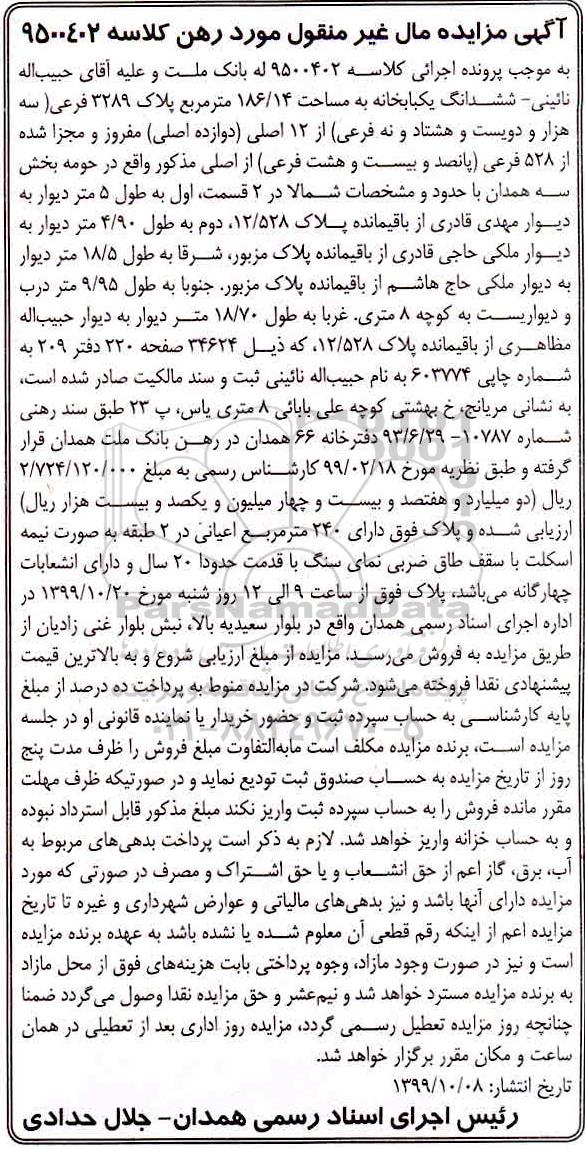 آگهی مزایده مال غیر منقول مورد رهن کلاسه ۹۵۰۰۴۰۲
به موجب پرونده اجرائی کلاسه ۹۵۰۰۴۰۲ له بانک ملت و علیه آقای حبیب‌اله
نائینی- ششدانگ یکبابخانه به مساحت ۱۸۶/۱۴ مترمربع پلاک ۳۲۸۹ فرعی( سه
هزار و دویست و هشتاد و نه فرعی) از ۱۲ اصلی (دوازده اصلی) مفروز و مجزا شده
از ۵۲۸ فرعی (پانصد و بیست و هشت فرعی) از اصلی مذکور واقع در حومه بخش
سه همدان با حدود و مشخصات شمالا در ۲ قسمت، اول به طول ۵ متر دیوار به
دیوار مهدی قادری از باقیمانده پلاک ۱۲/۵۲۸، دوم به طول ۴/۹۰ متر دیوار به
دیوار ملکی حاجی قادری از باقیمانده پلاک مزبور، شرقا به طول ۱۸/۵ متر دیوار
به دیوار ملکی حاج هاشم از باقیمانده پلاک مزبور. جنوبا به طول ۹/۹۵ متر درب
و دیواریست به کوچه ۸ متری. غربا به طول ۱۸/۷۰ متر دیوار به دیوار حبیب‌اله
مظاهری از باقیمانده پلاک ۱۲/۵۲۸، که ذیل ۳۴۶۲۴ صفحه ۲۲۰ دفتر ۲۰۹ به
شماره چاپی ۶۰۳۷۷۴ به نام حبیب‌اله نائینی ثبت و سند مالکیت صادر شده است،
به نشانی مریانج، خ بهشتی کوچه علی بابائی ۸ متری یاس، پ ۲۳ طبق سند رهنی
شماره ۱۰۷۸۷- ۹۳/۶/۲۹ دفترخانه ۶۶ همدان در رهن بانک ملت همدان قرار
گرفته و طبق نظریه مورخ ۹۹/۰۲/۱۸ کارشناس رسمی به مبلغ ۲/۷۲۴/۱۲۰/۰۰۰
ریال (دو میلیارد و هفتصد و بیست و چهار میلیون و یکصد و بیست هزار ریال)
ارزیابی شده و پلاک فوق دارای ۲۴۰ مترمربع اعیانی در ۲ طبقه به صورت نیمه
اسکلت با سقف طاق ضربی نمای سنگ با قدمت حدودا ۲۰ سال و دارای انشعابات
چهارگانه می‌باشد، پلاک فوق از ساعت ۹ الی ۱۲ روز شنبه مورخ ۱۳۹۹/۱۰/۲۰ در
اداره اجرای اسناد رسمی همدان واقع در بلوار سعیدیه بالا، نبش بلوار غنی زادیان از
طریق مزایده به فروش می‌رسد. مزایده از مبلغ ارزیابی شروع و به بالاترین قیمت
پیشنهادی نقدا فروخته می‌شود. شرکت در مزایده منوط به پرداخت ده درصد از مبلغ
پایه کارشناسی به حساب سپرده ثبت و حضور خریدار یا نماینده قانونی او در جلسه
مزایده است، برنده مزایده مکلف است مابه‌التفاوت مبلغ فروش را ظرف مدت پنج
روز از تاریخ مزایده به حساب صندوق ثبت تودیع نماید و در صورتیکه ظرف مهلت
مقرر مانده فروش را به حساب سپرده ثبت واریز نکند مبلغ مذکور قابل استرداد نبوده
و به حساب خزانه واریز خواهد شد. لازم به ذکر است پرداخت بدهی‌های مربوط به
آب، برق، گاز اعم از حق انشعاب و یا حق اشتراک و مصرف در صورتی که مورد
مزایده دارای آنها باشد و نیز بدهی‌های مالیاتی و عوارض شهرداری و غیره تا تاریخ
مزایده اعم از اینکه رقم قطعی آن معلوم شده یا نشده باشد به عهده برنده مزایده
است و نیز در صورت وجود مازاد، وجوه پرداختی بابت هزینه‌های فوق از محل مازاد
به برنده مزایده مسترد خواهد شد و نیم‌عشر و حق مزایده نقدا وصول می‌گردد ضمنا
چنانچه روز مزایده تعطیل رسمی گردد، مزایده روز اداری بعد از تعطیلی در همان
ساعت و مکان مقرر برگزار خواهد شد.
تاریخ انتشار: ۱۳۹۹/۱۰/۰۸
رئیس اجرای اسناد رسمی همدان- جلال حدادی
ParsNamadData
۰۲۱-۸۸۳۴۹۶۷۰-۵